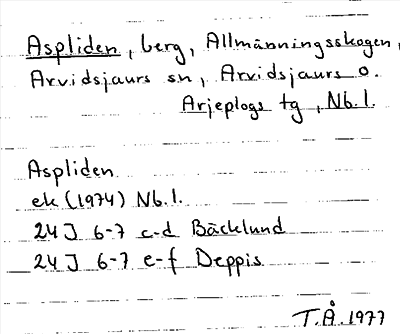 Aspliden, berg, Allmänningsskogen,
Arvidsjaurs sn, Arvidsjaurs o.
Arjeplogs tg, Nb.l.
Aspliden
ek (1974) Nb.l.
24J 6-7 c-d Bäcklund
24J 6-7 e-f Deppis
T.Å. 1977